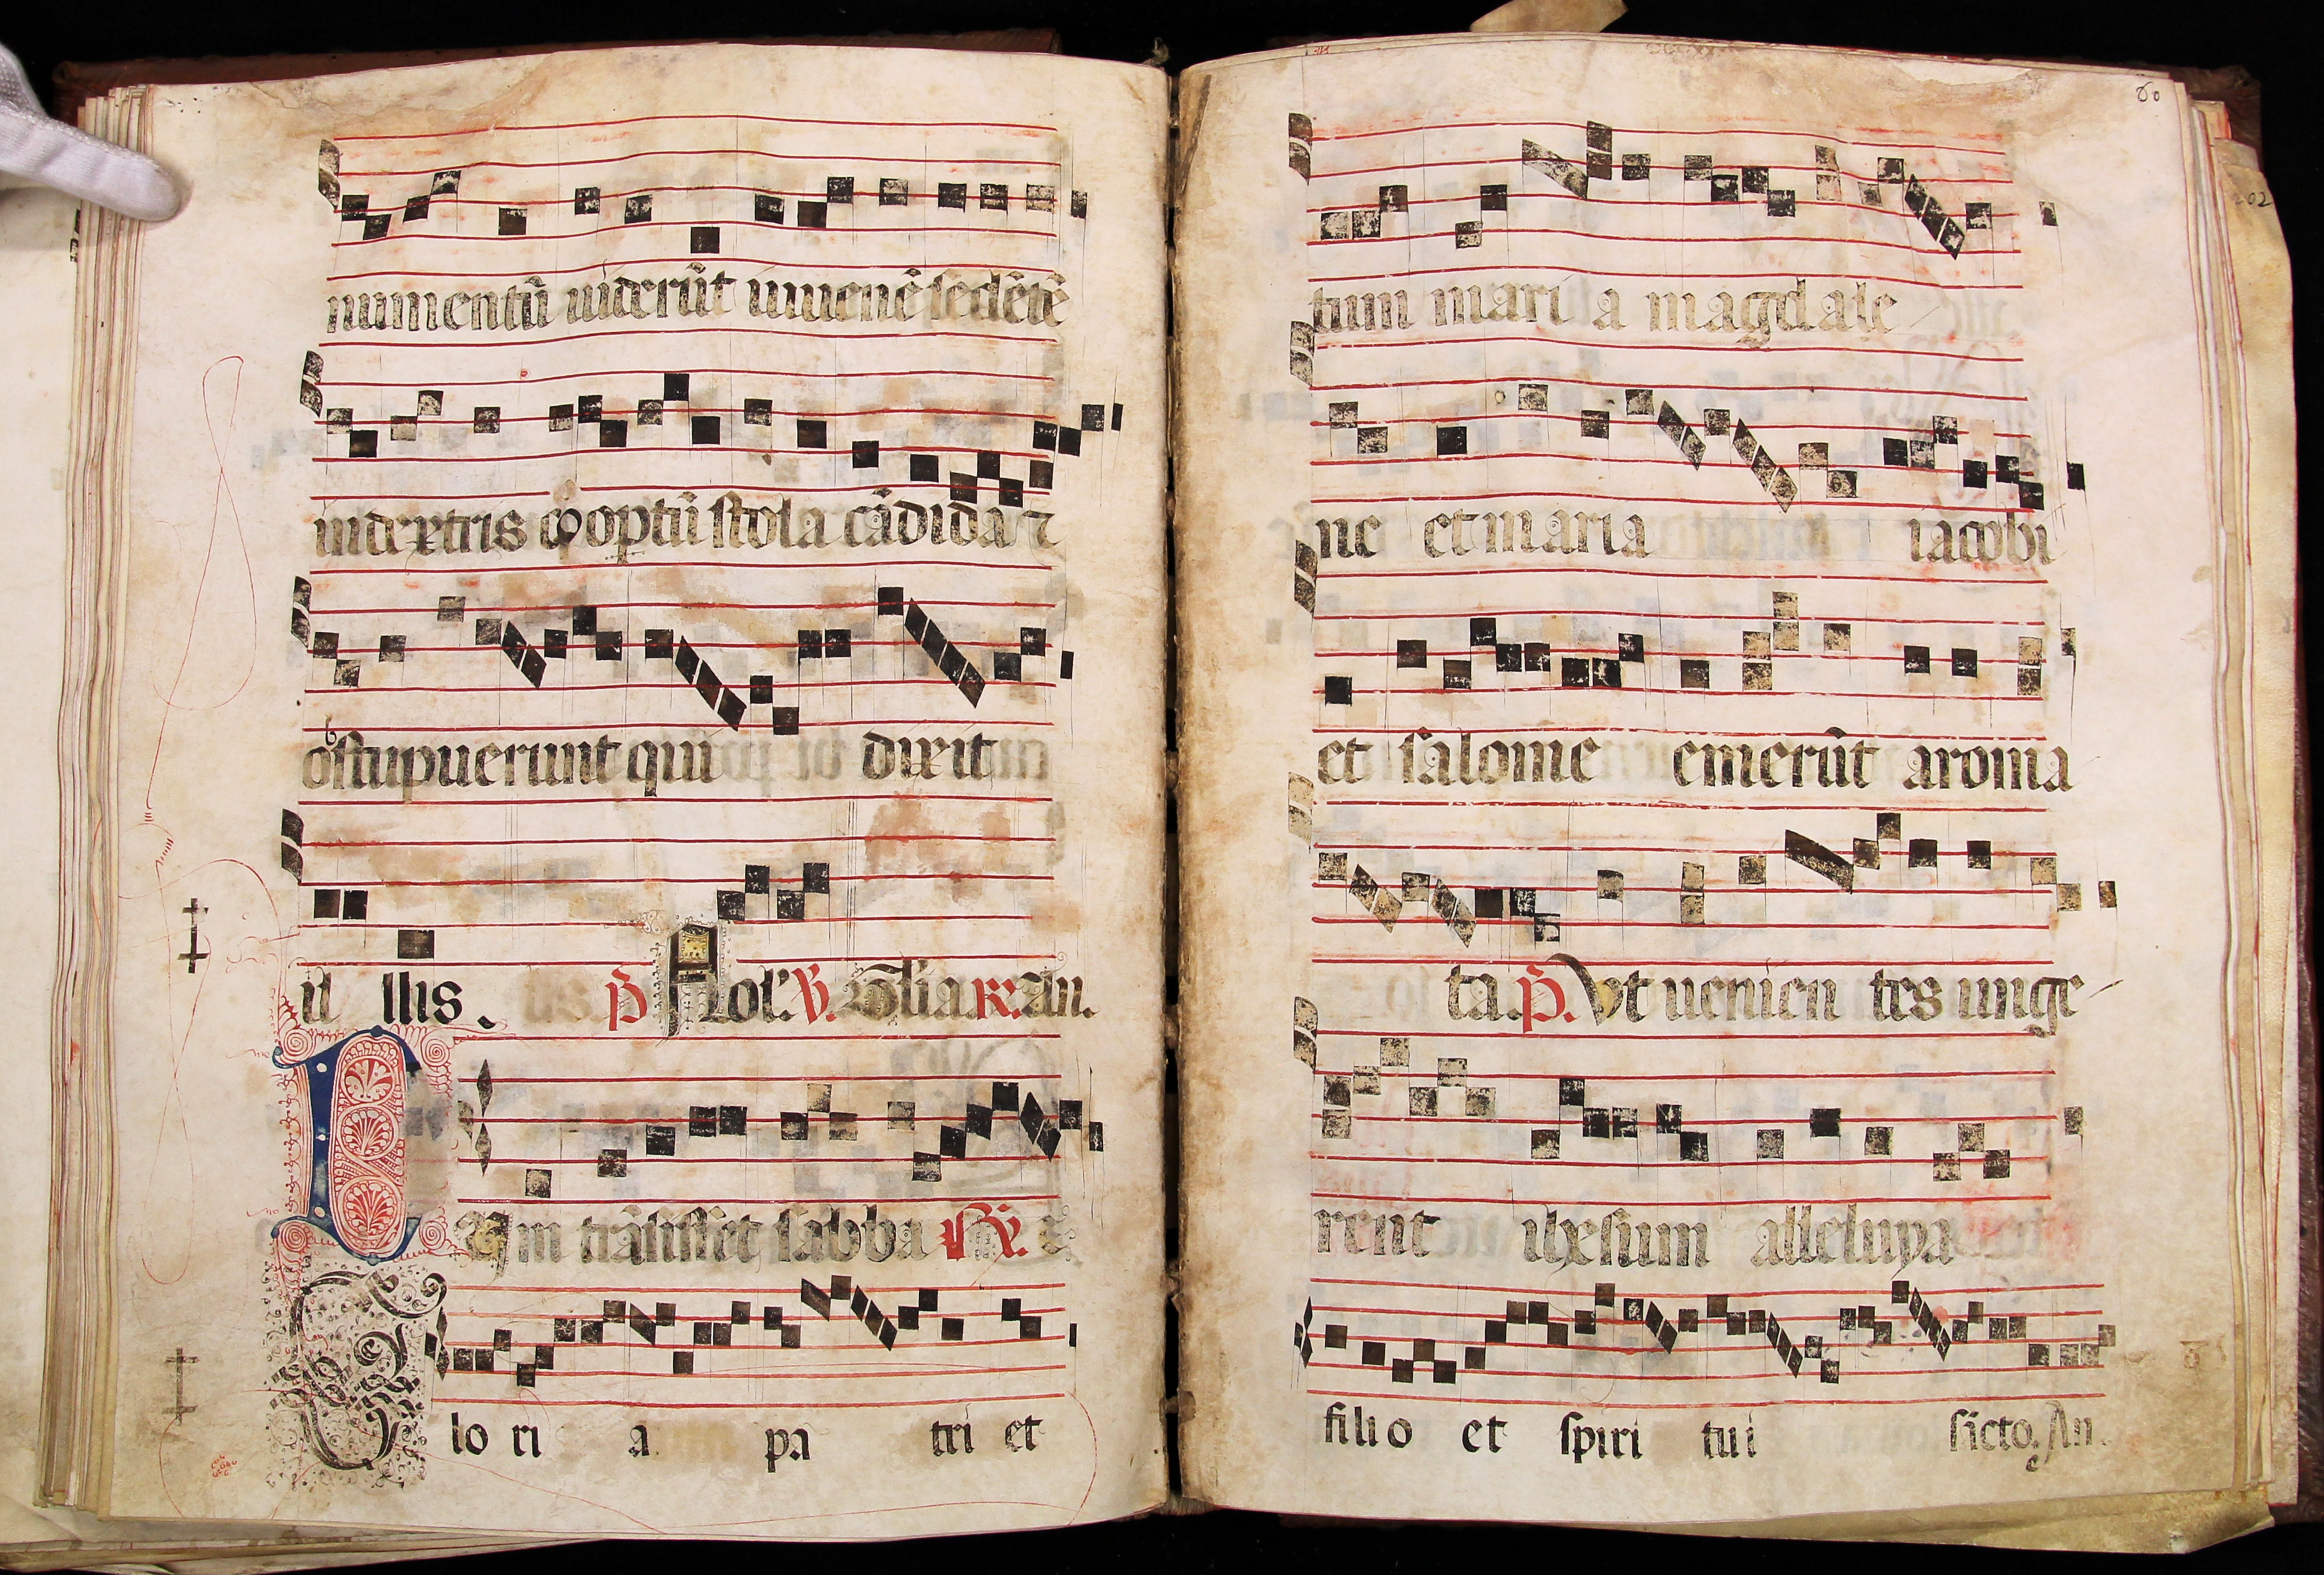 numentū uiderūt iuuenē sedētē
indextris cooptū stola cādida ⁊
obstupuerunt qui dixit
il llis.
P Nolͥ. V. Glia R. an.
Dum trāsisset sabba
Glo ri a pa tri et
80
tum mari a magdale
ne et maria iacobi
et salome emerūt aroma
ta. P. Vt uenien tes unge
rent ihesum alleluya
filio et spiri tui sācto. An.
202